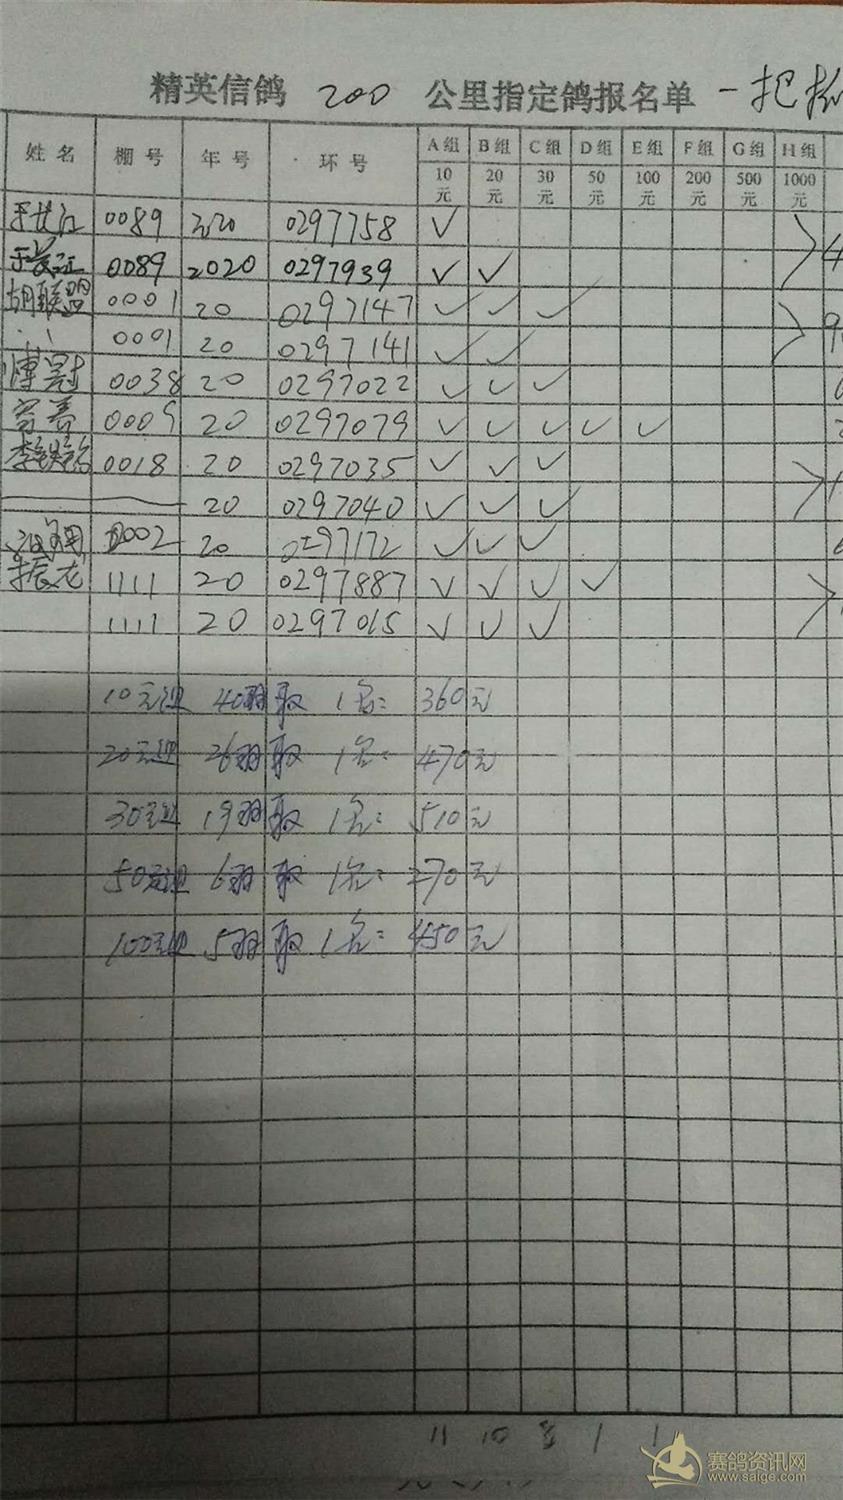 精英信鸽 200 公里指定鸽报名单 一把抓
姓名 棚号 年号 环号 A组 B组 C组 D组 E组 F组 G组 H组
10元 20元 30元 50元 100元 200元 500元 1000元
0089 2020 0297758 ✓
0089 2020 0297939 ✓ ✓
胡联盟 0001 20 0297147 ✓ ✓ ✓
〃 0001 20 0297141 ✓ ✓
0038 20 0297022 ✓ ✓ ✓
0009 20 0297079 ✓ ✓ ✓ ✓ ✓
李铁铭 0018 20 0297035 ✓ ✓ ✓
20 0297040 ✓ ✓ ✓
0002 20 0297172 ✓ ✓ ✓
李振龙 1111 20 0297887 ✓ ✓ ✓ ✓
1111 20 0297015 ✓ ✓ ✓
10元组 40羽 取 1名: 360元
20元组 26羽 取 1名: 470元
30元组 19羽 取 1名: 510元
50元组 6羽 取 1名: 270元
100元组 5羽 取 1名: 450元
11 10 8 1 1
赛鸽资讯网
www.saige.com